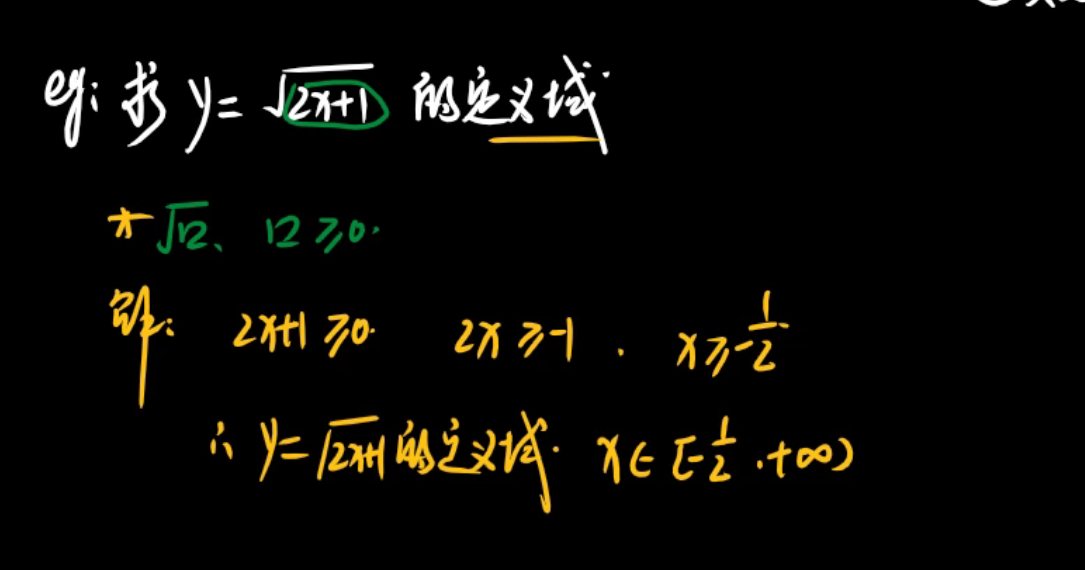 eg: 求 y=√(2x+1) 的定义域.
* √口、 口≥0.
解: 2x+1≥0. 2x≥-1. x≥-1/2.
∴ y=√(2x+1) 的定义域. x∈[-1/2,+∞)